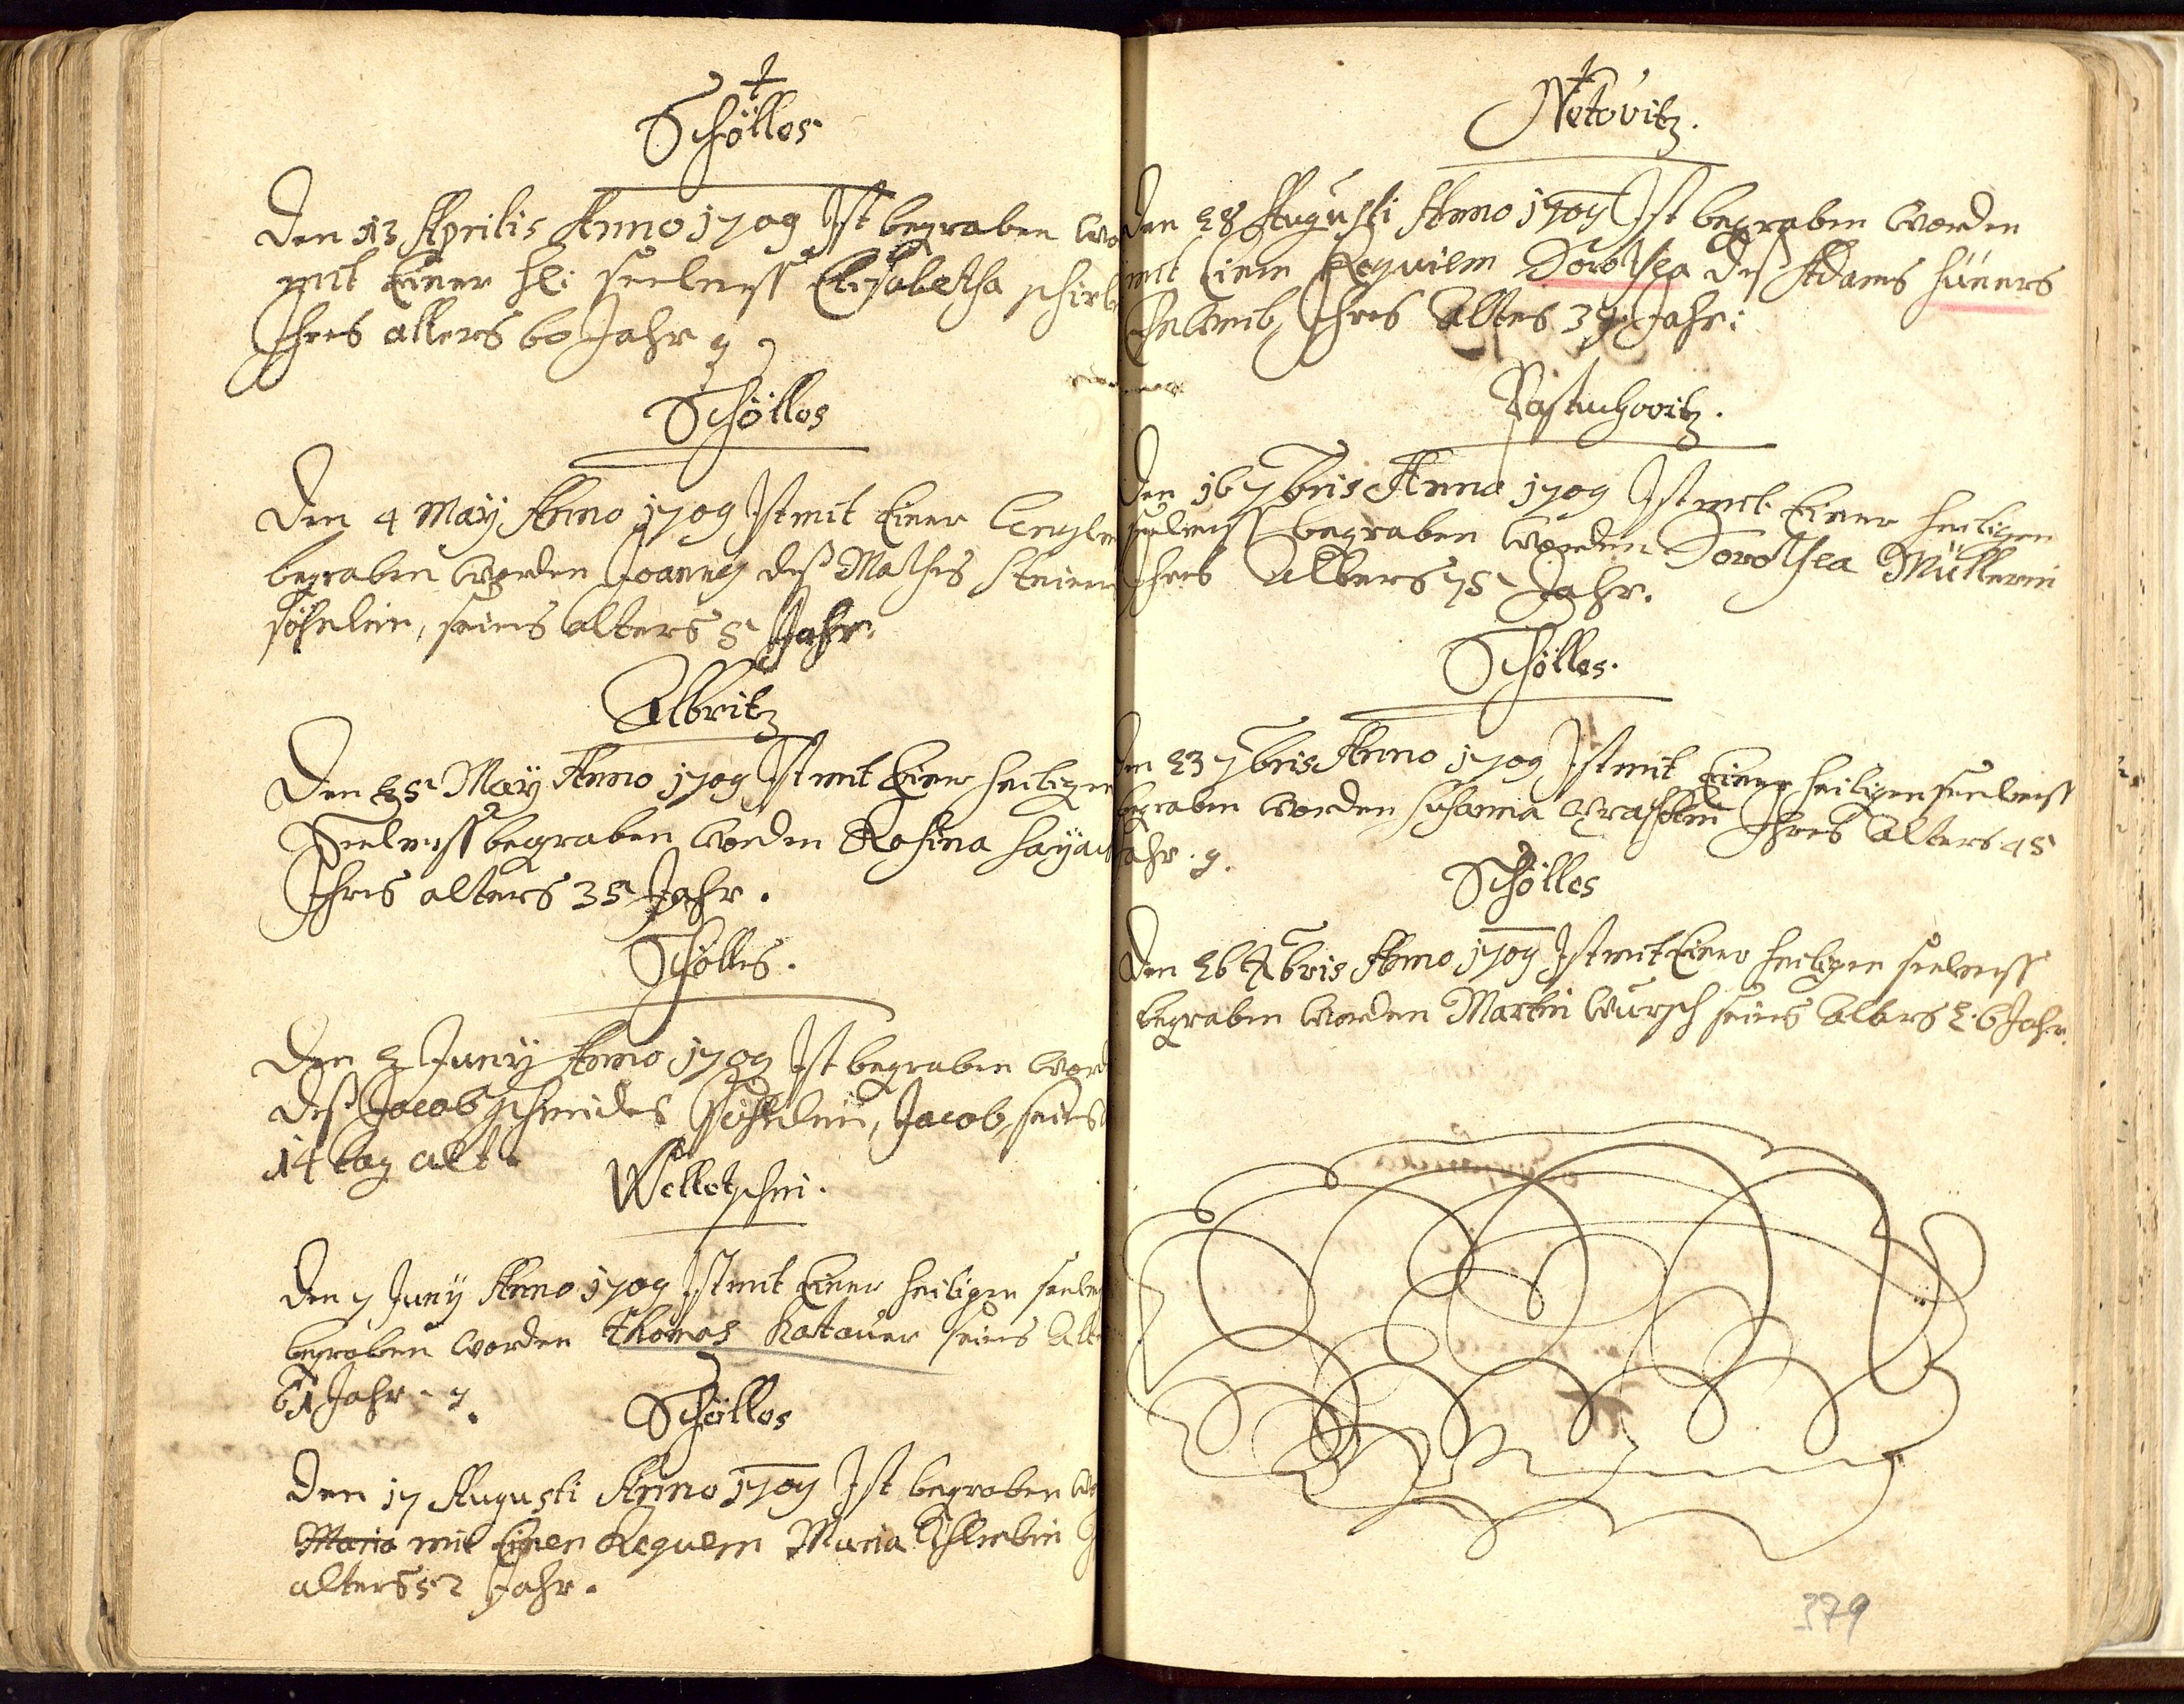 Schölles
Den 13 Aprilis Anno 1709 Ist begraben wo
mit Einer hl: seelmess Elisabetha
Ihres alters 60 Jahr
Schölles
Den 4 May Anno 1709 Ist mit Einer
begraben worden Joannes deß Mathes
söhnlein, seines alters 5 Jahr.
Albritz
Den 25 May Anno 1709 Ist mit Einer heiligen
Seelmess begraben worden Rosina
Ihres alters 35 Jahr.
Schölles.
Den 2 Juny Anno 1709 Ist begraben word
deß Jacob schmides söhnlein, Jacob, seines
14 tag alt.
Welletschin.
Den 7 Juny Anno 1709 Ist mit Einer heiligen seelm
begraben worden Thomas Katauer seines Alte
61 Jahr.
Schölles
Den 17 Augusti Anno 1709 Ist begraben wo
Maria mit Einen Requiem Maria
alters 52 Jahr.
Netovitz.
Den 28 Augusti Anno 1709 Ist begraben worden
mit Einen Requiem Dorothea deß Adams hüners
Eheweib, Ihres Alters 39 Jahr:
Pastuchovitz.
Den 16 7bris Anno 1709 Ist mit Einer heiligen
seelmess begraben worden Dorothea Müllerin
Ihres Alters 75 Jahr.
Schölles.
Den 23 7bris Anno 1709 Ist mit Einer heiligen seelmess
begraben worden Susanna Ihres Alters 45
Jahr.
Schölles
Den 26 Xbris Anno 1709 Ist mit Einer heiligen seelmess
begraben worden Martin Wursch seines Alters 26 Jahr.
379